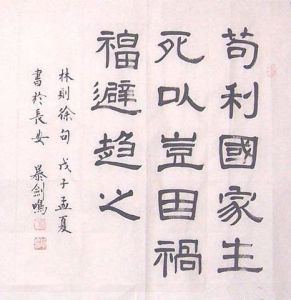 苟利國家生
死以豈因禍
福避趨之
林則徐句 戊子孟夏
書於長安 慕劍鳴